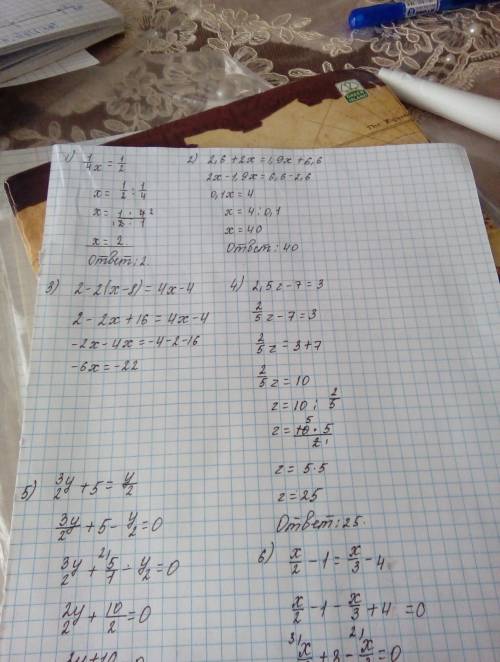 1) 1/4 x = 1/2
x = 1/2 : 1/4
x = 1 · 4² / ₁2 · 1
x = 2
Ответ: 2
2) 2,6 + 2x = 1,9x + 6,6
2x - 1,9x = 6,6 - 2,6
0,1x = 4
x = 4 : 0,1
x = 40
Ответ: 40
3) 2 - 2(x - 8) = 4x - 4
2 - 2x + 16 = 4x - 4
-2x - 4x = -4 - 2 - 16
-6x = -22
4) 2,5z - 7 = 3
2/5 z - 7 = 3
2/5 z = 3 + 7
2/5 z = 10
z = 10 : 2/5
z = ⁵10 · 5 / 2₁
z = 5 · 5
z = 25
Ответ: 25.
5) 3y/2 + 5 = y/2
3y/2 + 5 - y/2 = 0
3y/2 + ²⁾5/1 - y/2 = 0
2y/2 + 10/2 = 0
2y + 10
6) x/2 - 1 = x/3 - 4
x/2 - 1 - x/3 + 4 = 0
³⁾x + 3 - ²⁾x = 0
The